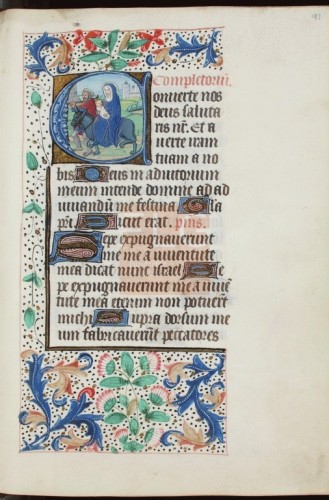 Completoriu᷑.
Conuerte nos
deus saluta
ris nr̄. Et a
uerte iram
tuam a no
bis Deus in adiutorium
meum intende domine ad ad
iuuandū me festina Gla
pr̄i Sicut erat. p̄us.
Sepe expugnauerunt
me a iuuentute
mea dicat nunc israel Se
pe expugnauerunt me a iuuē
tute mea etenim non potuer̄t
michi Supra dorsum me
um fabricauer̄t peccatores